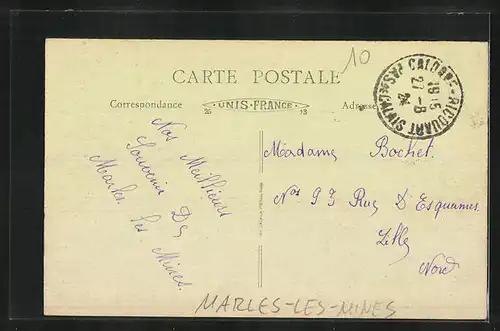 10
CARTE POSTALE
Correspondance
UNIS-FRANCE
26
13
Adresse
CALONNE-RICOUART
PAS DE CALAIS
19 15
27-8
24
Nos Meilleurs
Souvenir De
Marles Les Mines.
Madame Bochet.
Nos 93 Rue D'Esquermes
Lille
Nord
MARLES-LES-MINES